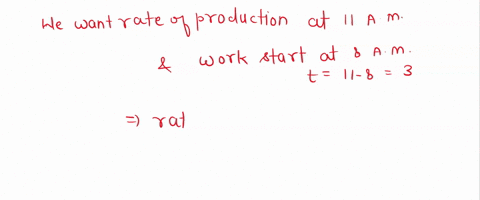 We want rate of production at 11 A.M.
& work start at 8 A.M.
t = 11-8 = 3
⇒ rat